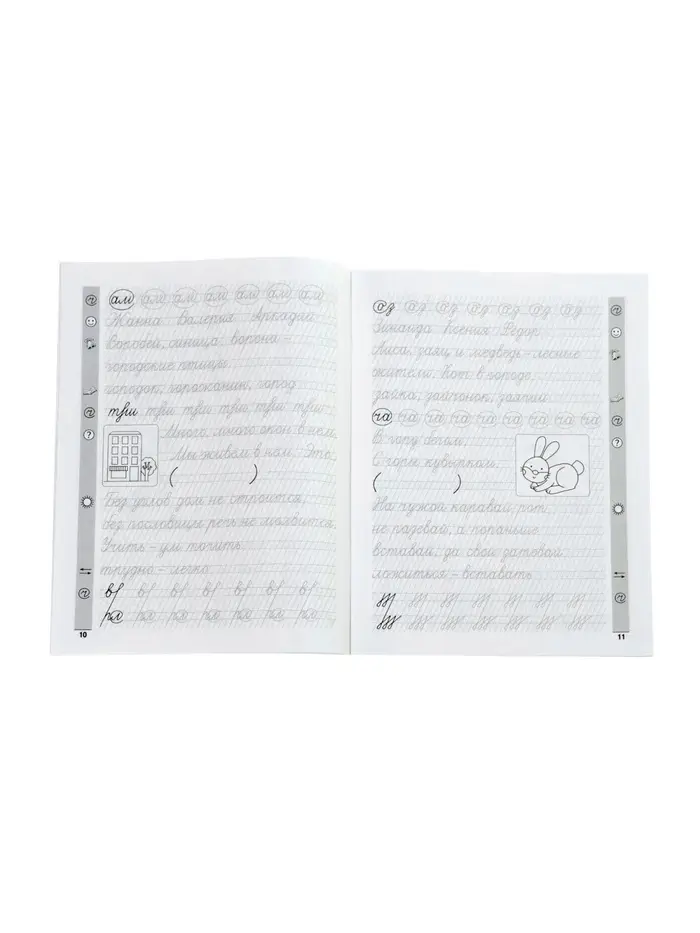 ам ам ам ам ам ам ам
Жанна Валерия Аркадий
Воробей, синица, ворона –
городские птицы.
городок, горожанин, город
тви тви тви тви тви тви
Много, много окон в нём.
Мы живём в нём. Это
( )
Без углов дом не строится,
без пословицы речь не молвится.
Учить – ум точить.
трудно – легко
10
оз оз оз оз оз оз оз
Зинаида Ксения Фёдор
Лиса, заяц и медведь – лесные
жители. Кот в городе.
зайка, зайчонок, заячий
ча ча ча ча ча ча ча ча
В гору бегом,
С горы кувырком.
( )
На чужой каравай рот
не разевай, а пораньше
вставай, да свой затевай.
ложиться – вставать
11